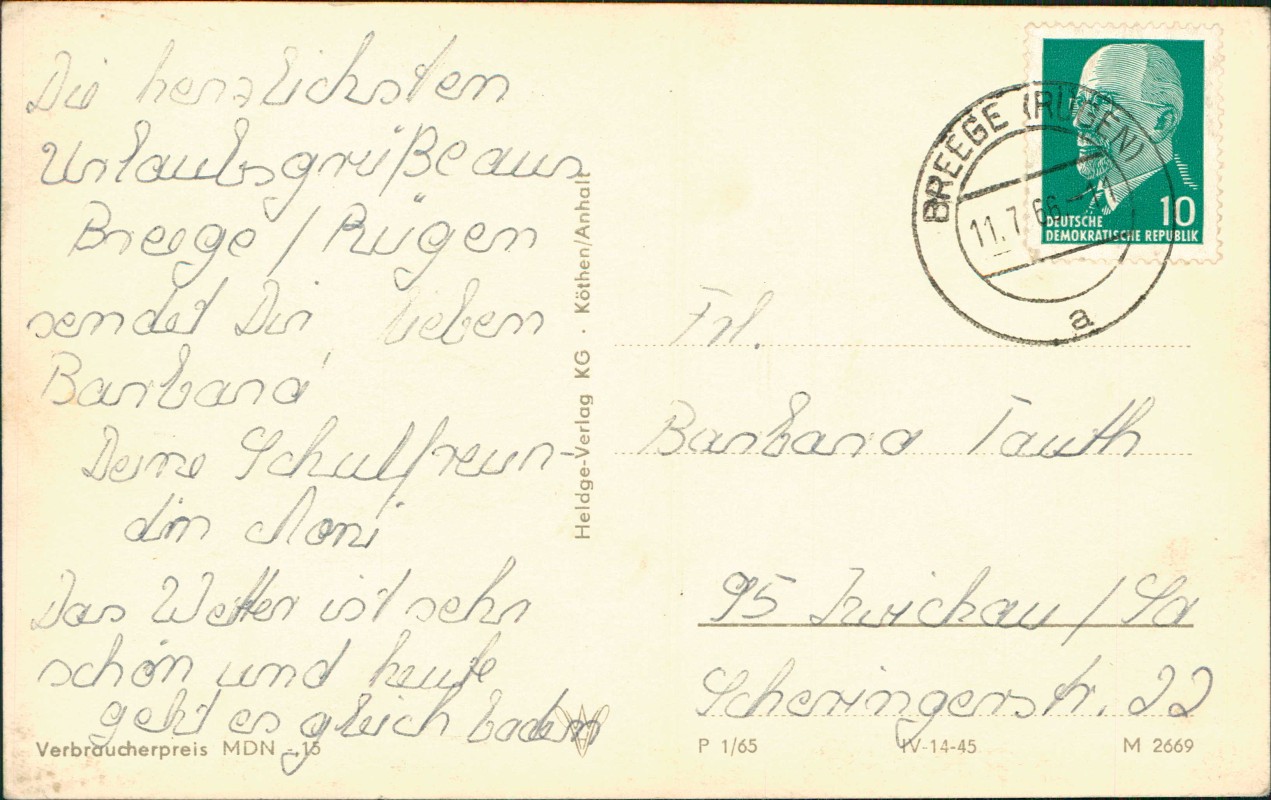 Die herzlichsten
Urlaubsgrüße aus
Breege / Rügen
sendet Dir lieben
Barbara
Deine Schulfreun-
din Moni
Das Wetter ist sehr
schön und heute
geht es gleich baden
Verbraucherpreis MDN -,15
Heldge-Verlag KG · Köthen/Anhalt
BREEGE (RÜGEN)
11.7.66-
a
10
DEUTSCHE
DEMOKRATISCHE REPUBLIK
Frl.
Barbara Tauth
95 Zwickau / Sa
Scheringerstr. 22
P 1/65 IV-14-45 M 2669